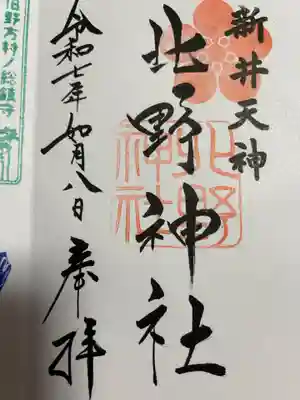 新井天神
北野神社
北野
神社
令和七年如月八日
奉拝
旧野方村ノ総鎮守